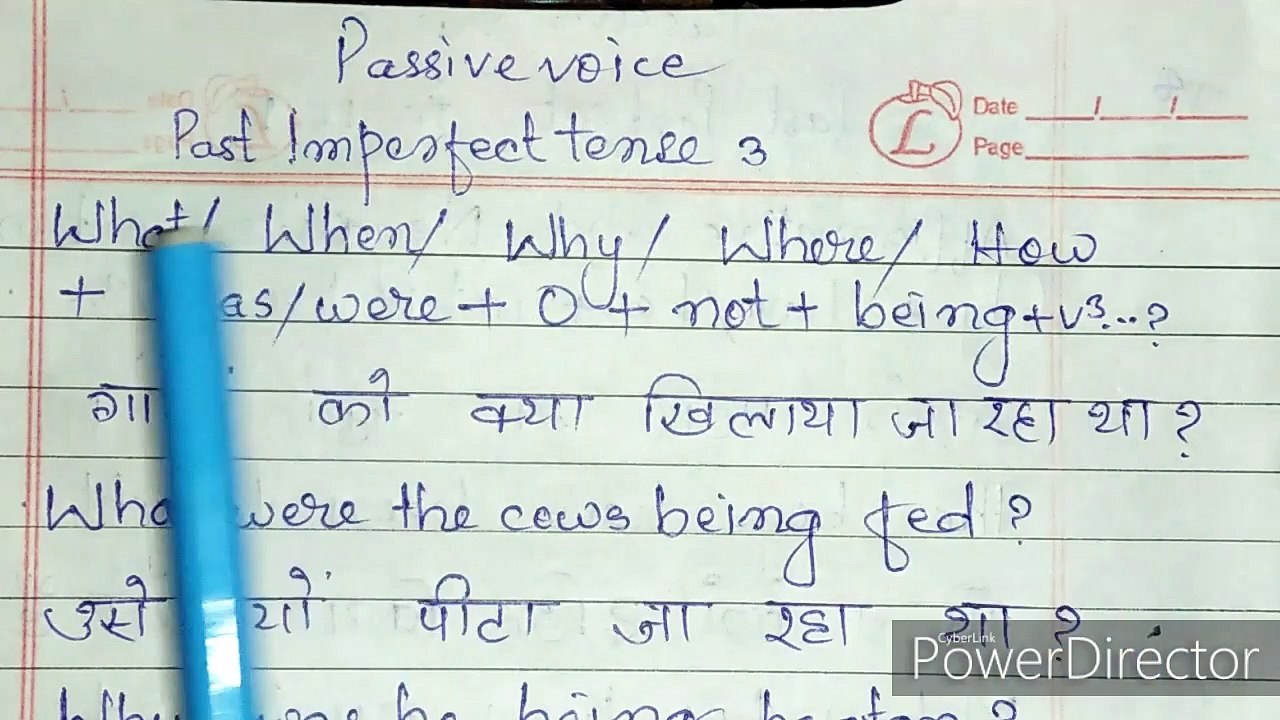 Passive voice
Past Imperfect tense 3
Date / /
Page
What/ When/ Why/ Where/ How
+ as/were + O + not + being + v3..?
को क्या खिलाया जा रहा था ?
were the cows being fed ?
उसे पीटा जा रहा था ?
CyberLink
PowerDirector
Why he being beaten ?